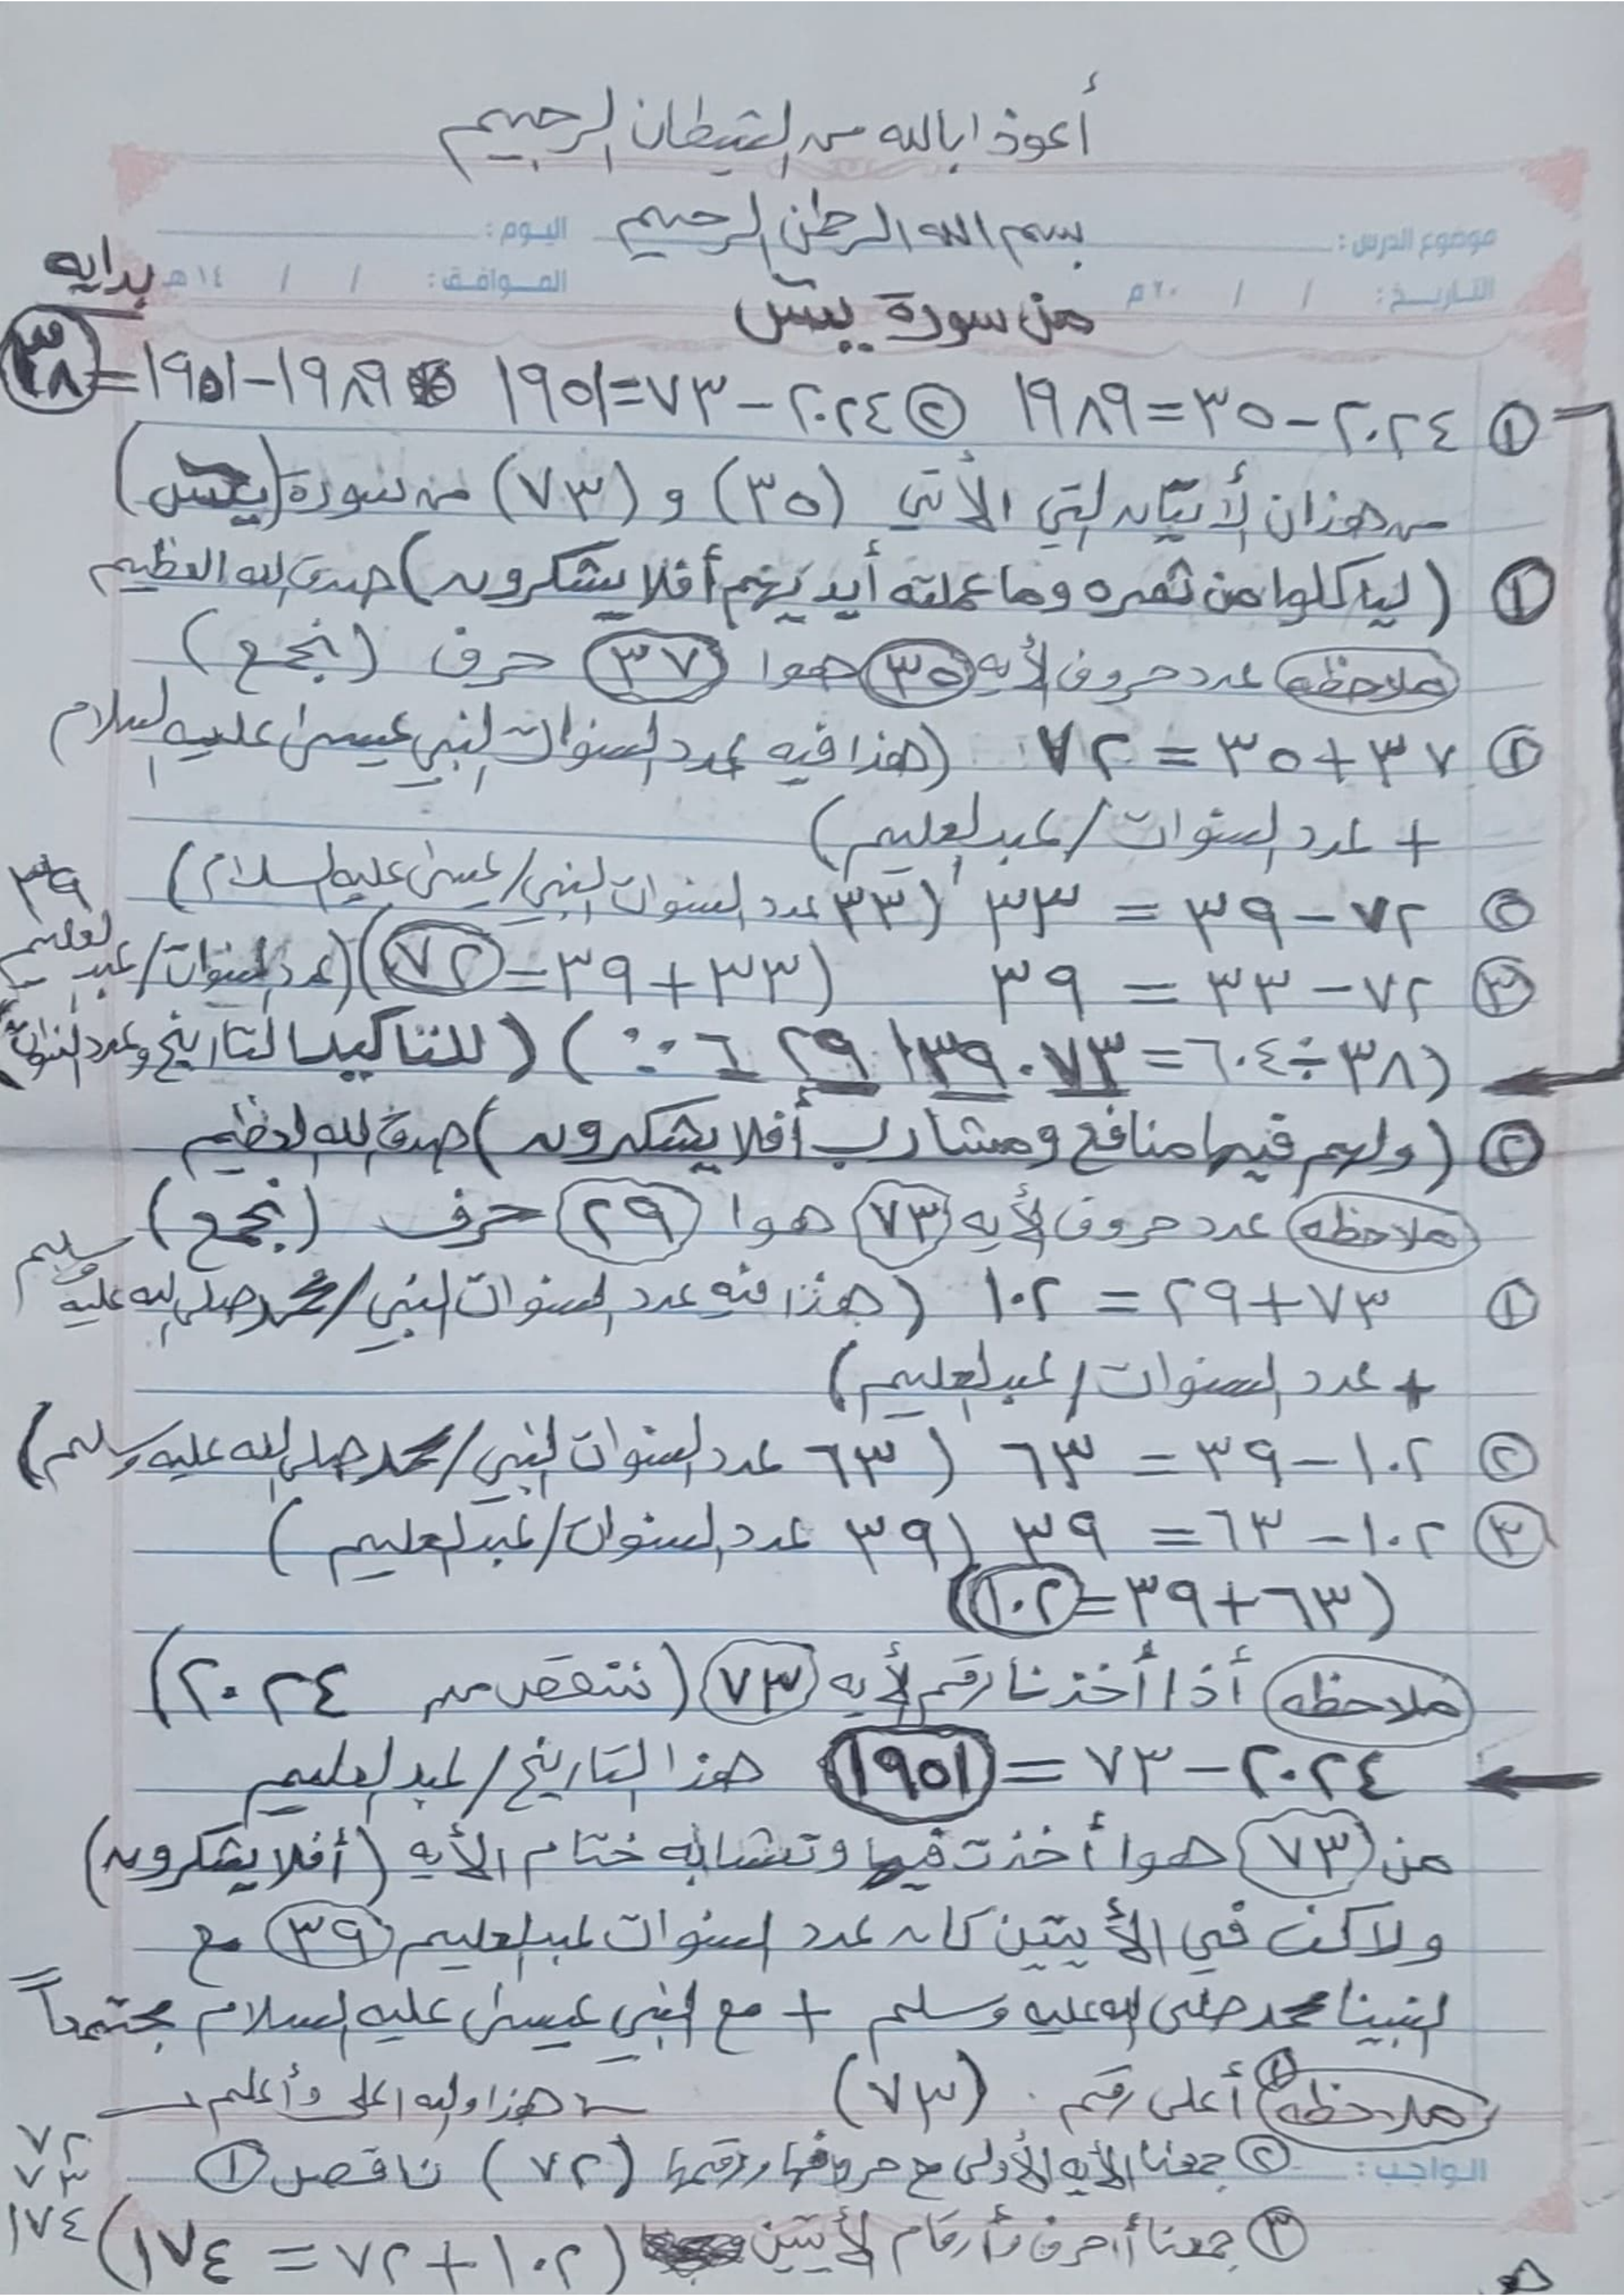 أعوذ ابالله من الشيطان الرجيم
بسم الله الرحمن الرحيم
موضوع الدرس: اليوم:
التاريخ: / / ٢٠م الموافق: / / ١٤هـ
بدايه
من سورة يس
① ٢٠٢٤-٣٥=١٩٨٩ ② ٢٠٢٤-٧٣=١٩٥١ ١٩٨٩-١٩٥١=٣٨
من هذان الأيتان التي الأتي (٣٥) و (٧٣) من سورة (يس)
① (لياكلوا من ثمره وما عملته أيديهم أفلا يشكرون) صدق الله العظيم
ملاحظه عدد حروف الأيه ٣٥ هوا ٣٧ حرف (نجمع)
① ٣٧+٣٥=٧٢ (هذا فيه عدد السنوات النبي عيسى عليه السلام
+ عدد السنوات/عبدالعليم)
② ٧٢-٣٩=٣٣ (٣٣ عدد السنوات النبي/عيسى عليه السلام)
③ ٧٢-٣٣=٣٩ (٣٣+٣٩=٧٢) (عدد السنوات/عبدالعليم ٣٩
(٣٨÷٦٠٤=٠٧٣ ١٣٩ ٢٩ ٦ ) (للتاكيد التاريخ وعدد السنوات)
② (ولهم فيها منافع ومشارب أفلا يشكرون) صدق الله العظيم
ملاحظه عدد حروف الأيه ٧٣ هوا ٢٩ حرف (نجمع)
① ٧٣+٢٩=١٠٢ (هذا فيه عدد السنوات النبي/محمد صلى الله عليه وسلم
+ عدد السنوات/عبدالعليم)
② ١٠٢-٣٩=٦٣ (٦٣ عدد السنوات النبي/محمد صلى الله عليه وسلم)
③ ١٠٢-٦٣=٣٩ (٣٩ عدد السنوات/عبدالعليم)
(٦٣+٣٩=١٠٢)
ملاحظه أذا أخذنا رقم الأيه ٧٣ (ننقص من ٢٠٢٤)
٢٠٢٤-٧٣=١٩٥١ هذا التاريخ/عبدالعليم
من ٧٣ هوا أخذت فيها وتشابه ختام الأيه (أفلا يشكرون)
ولاكن في الأيتين كان عدد السنوات عبدالعليم ٣٩ مع
النبينا محمد صلى الله عليه وسلم + مع النبي عيسى عليه السلام مجتمعاً
ملاحظه ① أعلى رقم (٧٣) هذا والله اعلى وأعلم
② جمعنا الأيه الأولى مع حروفها ورقمها (٧٢) ناقص ①
٧٢
٧٣
الواجب:
③ جمعنا أحرف وأرقام الأيتين (١٠٢+٧٢=١٧٤)
١٧٤